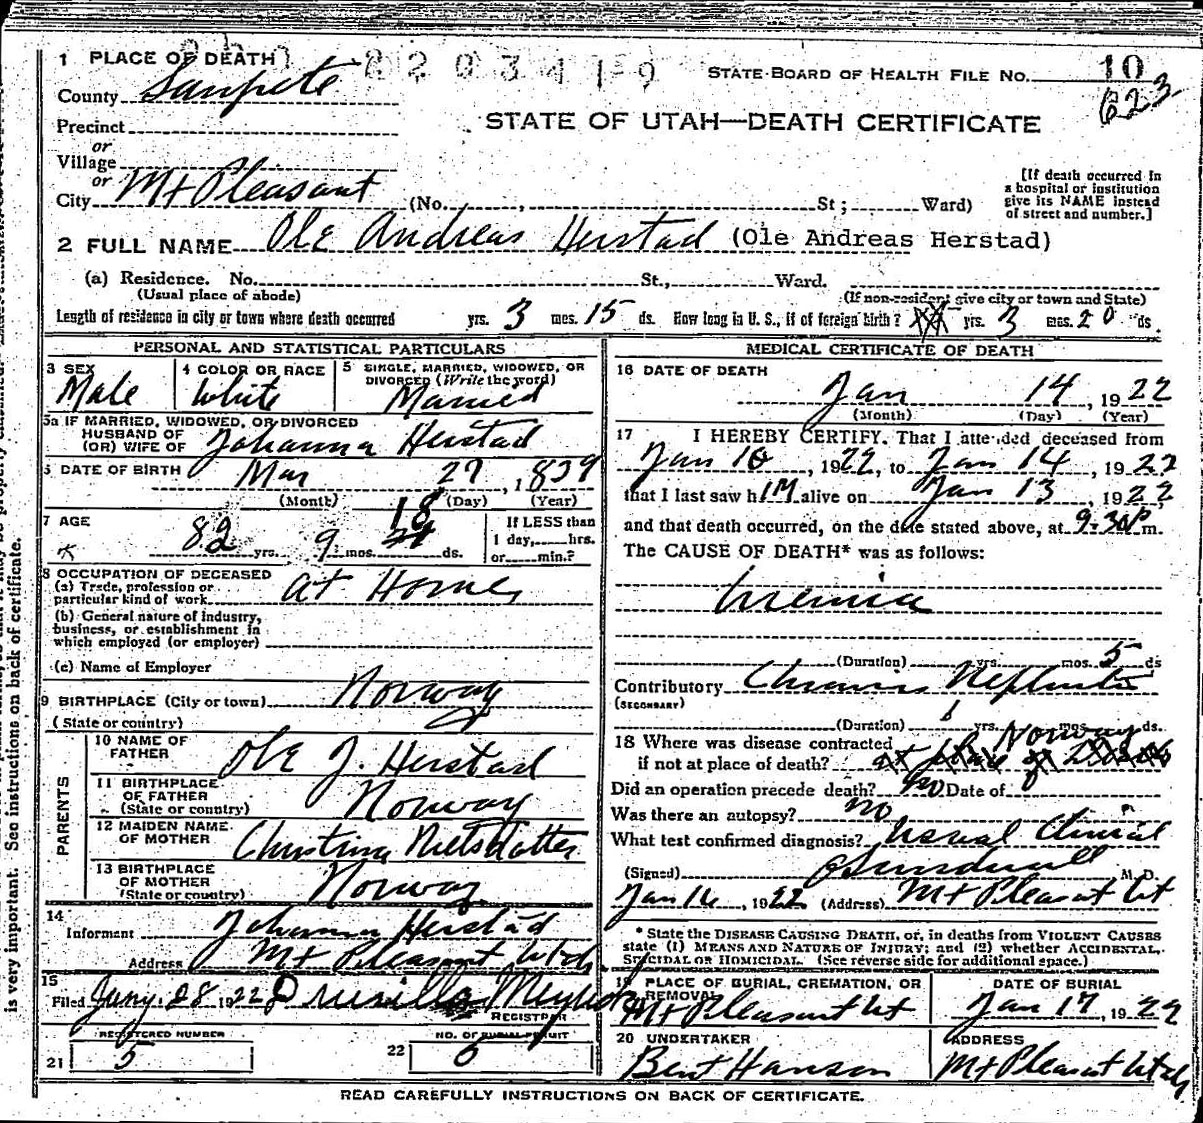 1 PLACE OF DEATH
2203419
STATE BOARD OF HEALTH FILE NO. 10
623
County Sanpete
STATE OF UTAH—DEATH CERTIFICATE
Precinct
or
Village
or
City Mt Pleasant (No. , St; Ward)
[If death occurred in
a hospital or institution
give its NAME instead
of street and number.]
2 FULL NAME Ole Andreas Herstad (Ole Andreas Herstad)
(a) Residence. No. St., Ward.
(Usual place of abode) (If non-resident give city or town and State)
Length of residence in city or town where death occurred yrs. 3 mos. 15 ds. How long in U. S., if of foreign birth? yrs. 3 mos. 20 ds.
PERSONAL AND STATISTICAL PARTICULARS
3 SEX Male
4 COLOR OR RACE White
5 SINGLE, MARRIED, WIDOWED, OR
DIVORCED (Write the word)
Married
5a IF MARRIED, WIDOWED, OR DIVORCED
HUSBAND OF
(OR) WIFE OF Johanna Herstad
6 DATE OF BIRTH Mar 27, 1839
(Month) (Day) (Year)
7 AGE 82 yrs. 9 mos. 18 ds.
If LESS than
1 day, hrs.
or min.?
8 OCCUPATION OF DECEASED
(a) Trade, profession or
particular kind of work At Home
(b) General nature of industry,
business, or establishment in
which employed (or employer)
(c) Name of Employer
9 BIRTHPLACE (City or town) Norway
(State or country)
PARENTS
10 NAME OF
FATHER Ole J. Herstad
11 BIRTHPLACE
OF FATHER
(State or country) Norway
12 MAIDEN NAME
OF MOTHER Christina Nielsdatter
13 BIRTHPLACE
OF MOTHER
(State or country) Norway
14
Informant Johanna Herstad
Address Mt Pleasant Utah
15
Filed Jany. 28 1922 Drusilla
REGISTRAR
REGISTERED NUMBER
21 5
NO. OF BURIAL PERMIT
22 6
MEDICAL CERTIFICATE OF DEATH
16 DATE OF DEATH
Jan 14, 1922
(Month) (Day) (Year)
17 I HEREBY CERTIFY, That I attended deceased from
Jan 10, 1922, to Jan 14, 1922
that I last saw him alive on Jan 13, 1922,
and that death occurred, on the date stated above, at 9:30 P m.
The CAUSE OF DEATH* was as follows:
Uremia
(Duration) yrs. mos. 5 ds
Contributory Chronic Nephritis
(SECONDARY)
(Duration) yrs. mos. ds.
18 Where was disease contracted Norway
if not at place of death? at place of Death
Did an operation precede death? no Date of
Was there an autopsy? no
What test confirmed diagnosis? Usual Clinical
(Signed) Sundwall M. D.
Jan 16, 1922 (Address) Mt Pleasant Ut
* State the DISEASE CAUSING DEATH, or, in deaths from VIOLENT CAUSES
state (1) MEANS AND NATURE OF INJURY; and (2) whether ACCIDENTAL,
SUICIDAL OR HOMICIDAL. (See reverse side for additional space.)
19 PLACE OF BURIAL, CREMATION, OR
REMOVAL
Mt Pleasant Ut
DATE OF BURIAL
Jan 17, 1922
20 UNDERTAKER
Bent Hansen
ADDRESS
Mt Pleasant Utah
READ CAREFULLY INSTRUCTIONS ON BACK OF CERTIFICATE.
is very important. See instructions on back of certificate.